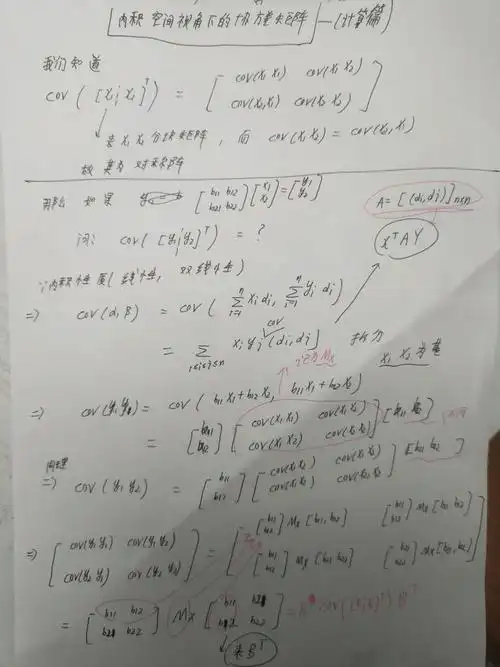 内积空间视角下的协方差矩阵 —(计算篇)
我们知道
cov([x₁ x₂]ᵀ) = [cov(x₁x₁) cov(x₁x₂)
cov(x₂x₁) cov(x₂x₂)]
矩阵, 而 cov(x₁x₂) = cov(x₂x₁)
故 其为 对称矩阵
那么 如果 [b₁₁ b₁₂
b₂₁ b₂₂] [x₁
x₂] = [y₁
y₂]
A = [(αi, αj)]n×n
问: cov([y₁ y₂]ᵀ) = ?
XᵀAY
∵内积性质(线性性, 双线性)
⇒ cov(α, β) = cov(Σ xi αi, Σ yi αi)
= Σ xi yj (αi, αj) 拆分
cov
1≤i≤j≤n
x₁ x₂ 为
记为 Mx
⇒ cov(y₁y₁) = cov(b₁₁x₁+b₁₂x₂, b₁₁x₁+b₁₂x₂)
= [b₁₁
b₁₂] [cov(x₁x₁) cov(x₁x₂)
cov(x₁x₂) cov(x₂x₂)] [b₁₁ b₁₂]
同理
⇒ cov(y₁y₂) = [b₁₁
b₁₂] [cov(x₁x₁) cov(x₁x₂)
cov(x₁x₂) cov(x₂x₂)] [b₂₁ b₂₂]
⇒ [cov(y₁y₁) cov(y₁y₂)
cov(y₂y₁) cov(y₂y₂)] = [[b₁₁
b₁₂] Mx [b₁₁, b₁₂] [b₁₁
b₁₂] Mx [b₂₁ b₂₂]
Mx [b₁₁ b₁₂] Mx [b₂₁, b₂₂]]
= [b₁₁ b₁₂
b₂₁ b₂₂] Mx [b₁₁ b₂₁
b₁₂ b₂₂] = B cov([x₁ x₂]ᵀ) Bᵀ
Bᵀ